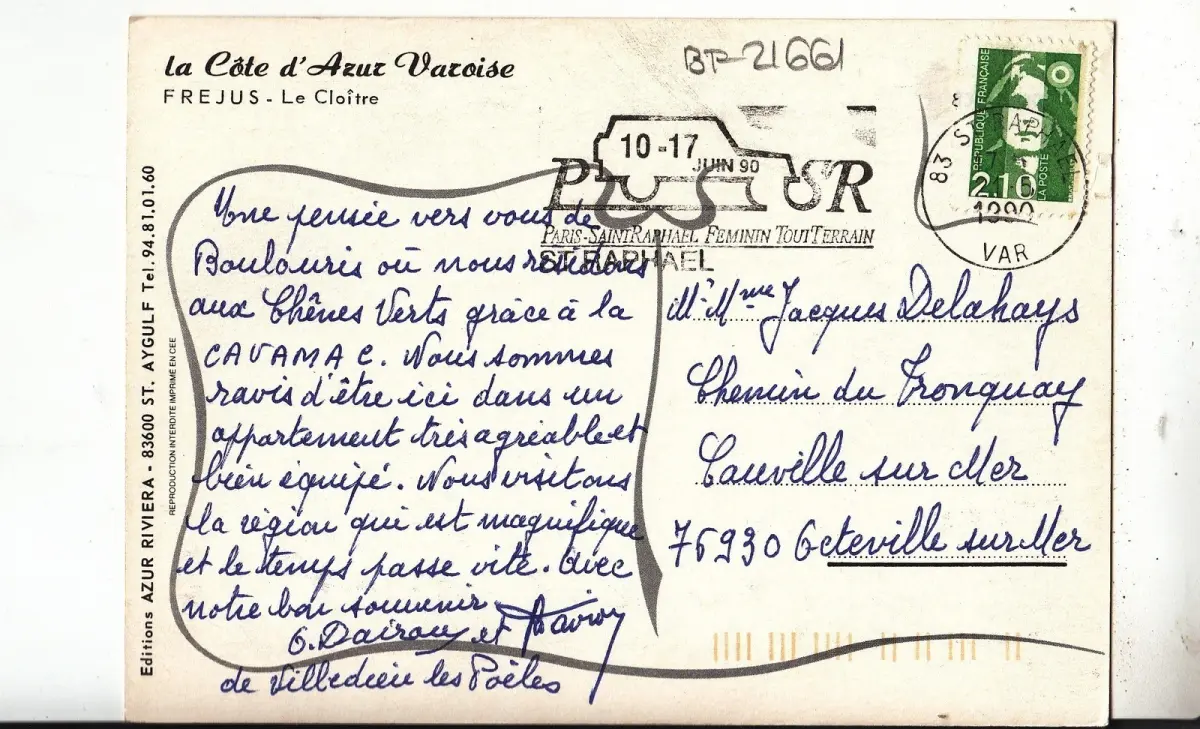 la Côte d'Azur Varoise
FREJUS - Le Cloître
BP-21661
10-17
JUIN 90
P SR
PARIS-SAINT RAPHAEL FEMININ TOUT TERRAIN
ST RAPHAEL
REPUBLIQUE FRANÇAISE
2.10
LA POSTE
83 ST RAPHAEL
1990
VAR
Editions AZUR RIVIERA - 83600 ST. AYGULF Tel. 94.81.01.60
REPRODUCTION INTERDITE IMPRIMÉ EN CEE
Une pensée vers vous de
Boulouris où nous résidons
aux Chênes Verts grâce à la
CAVAMAC. Nous sommes
ravis d'être ici dans un
appartement très agréable et
bien équipé. Nous visitons
la région qui est magnifique
et le temps passe vite. Avec
notre bon souvenir
G. Dairou et
de Villedieu les Poëles
Mr Mme Jacques Delahays
Chemin du Tronquay
Cauville sur Mer
76930 Octeville sur Mer